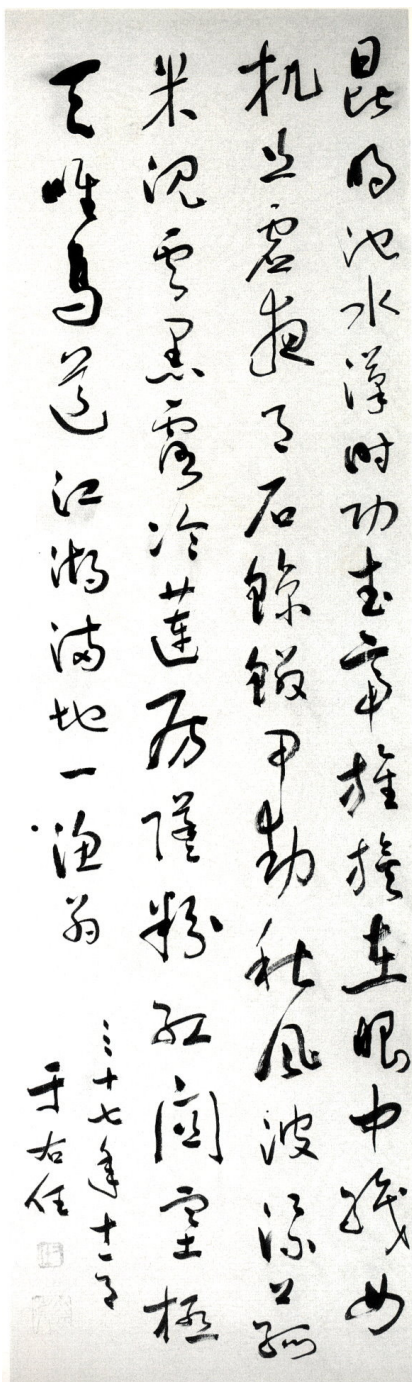 昆明池水漢時功武帝旌旗在眼中織女
机丝虛夜月石鯨鱗甲動秋風波漂菰
米沈雲黑露冷蓮房墜粉紅關塞極
天唯鳥道江湖滿地一漁翁
三十七年十一月
于右任